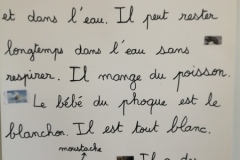 et dans l'eau. Il peut rester
longtemps dans l'eau sans
respirer. Il mange du poisson.
Le bébé du phoque est le
blanchon. Il est tout blanc.
moustache
Il a du